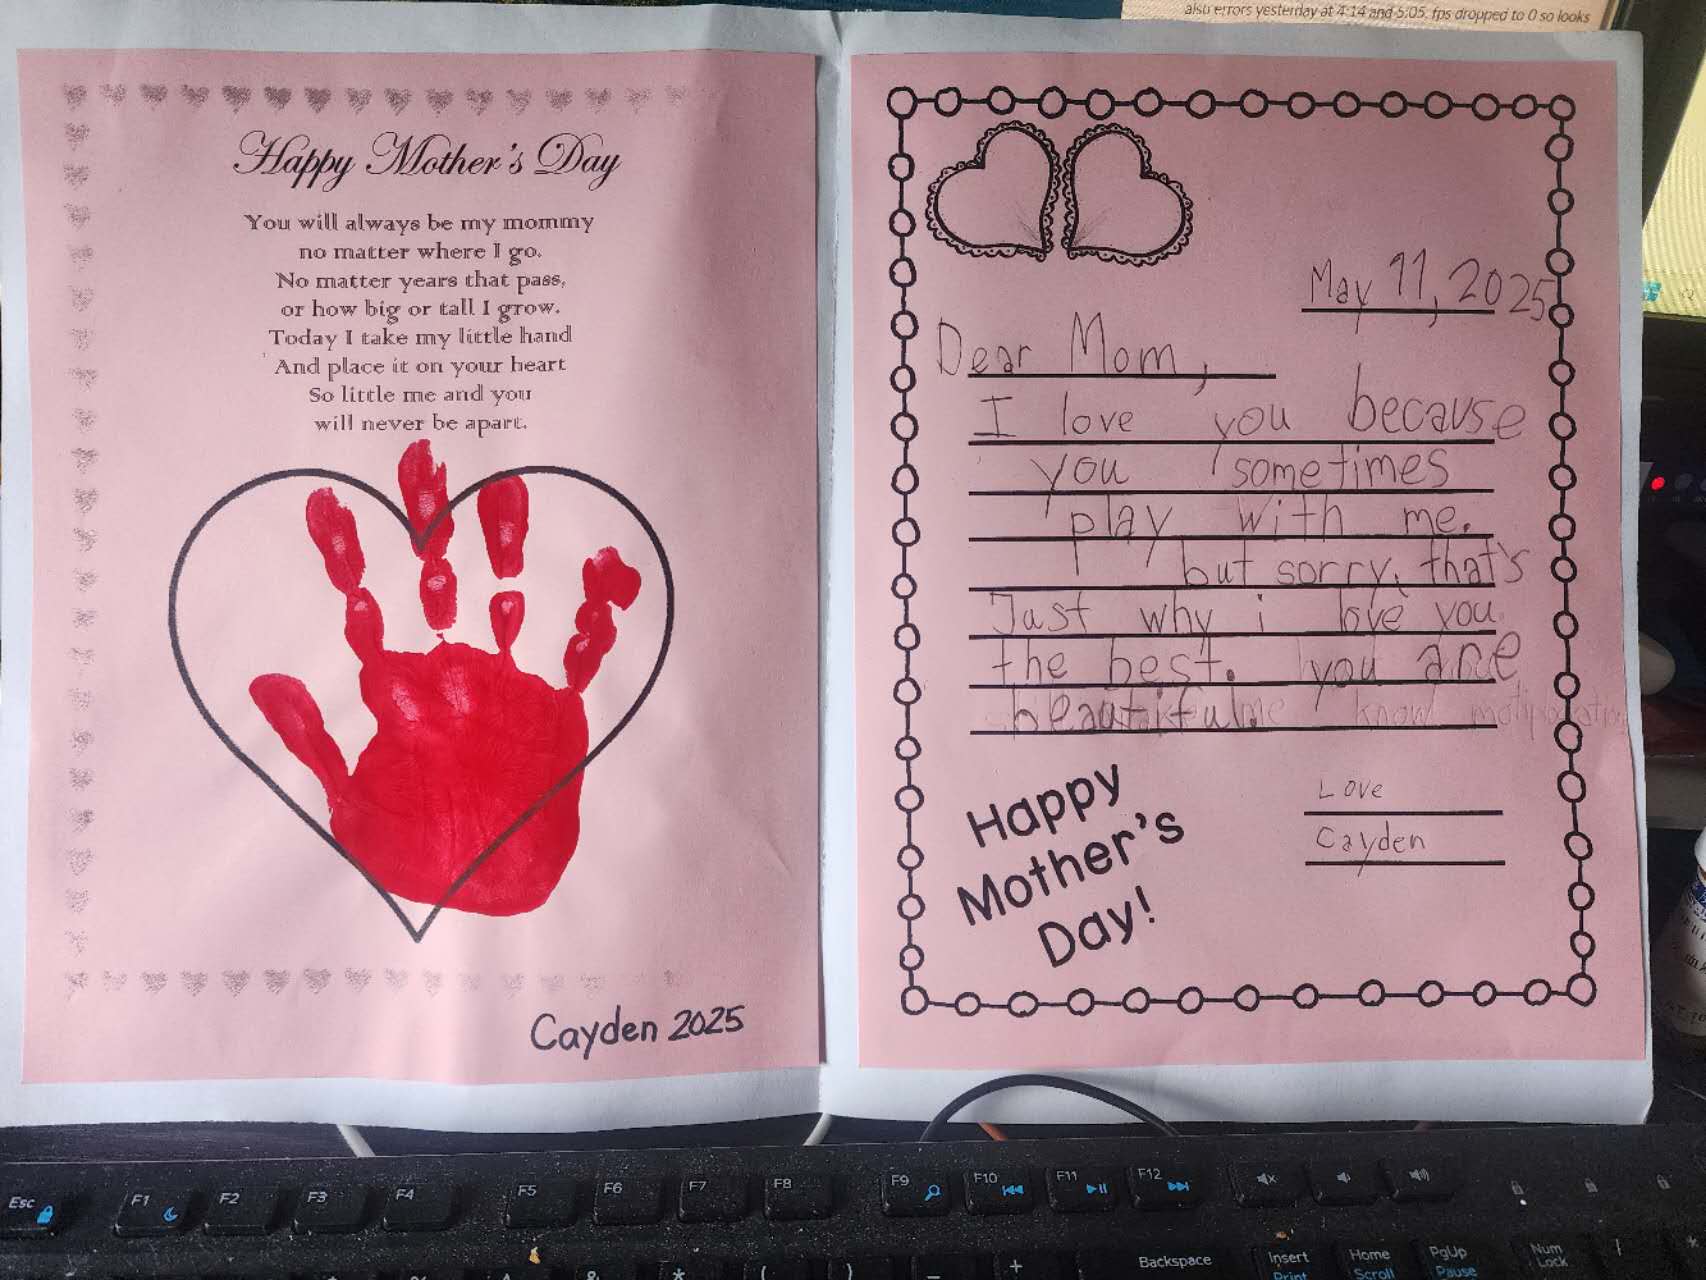 also errors yesterday at 4:14 and 5:05. fps dropped to 0 so looks
Happy Mother's Day
You will always be my mommy
no matter where I go.
No matter years that pass,
or how big or tall I grow.
Today I take my little hand
And place it on your heart
So little me and you
will never be apart.
Cayden 2025
May 11, 2025
Dear Mom,
I love you because
you sometimes
play with me.
but sorry, that's
Just why i love you
the best. you are
beautiful. me know
Love
Cayden
Happy
Mother's
Day!
Esc F1 F2 F3 F4 F5 F6 F7 F8 F9 F10 F11 F12
& * ( ) _ + Backspace Insert Home Scroll PgUp Pause Num Lock